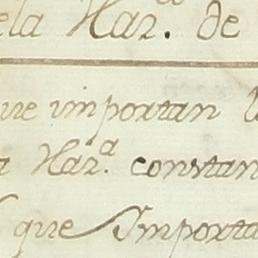 ela Har.ª de
que importan
a Har.ª constan
que Importa